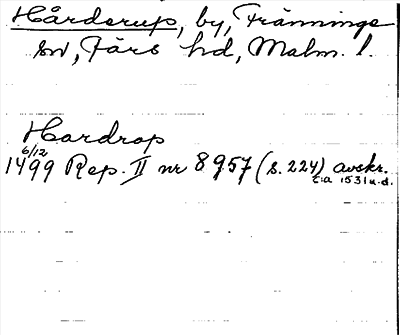 Hårderup, by, Fränninge
sn, Färs hd, Malm. l.
Hardrop
6/12
1499 Rep. II nr 8957 (s. 224) avskr.
c:a 1531 u.d.